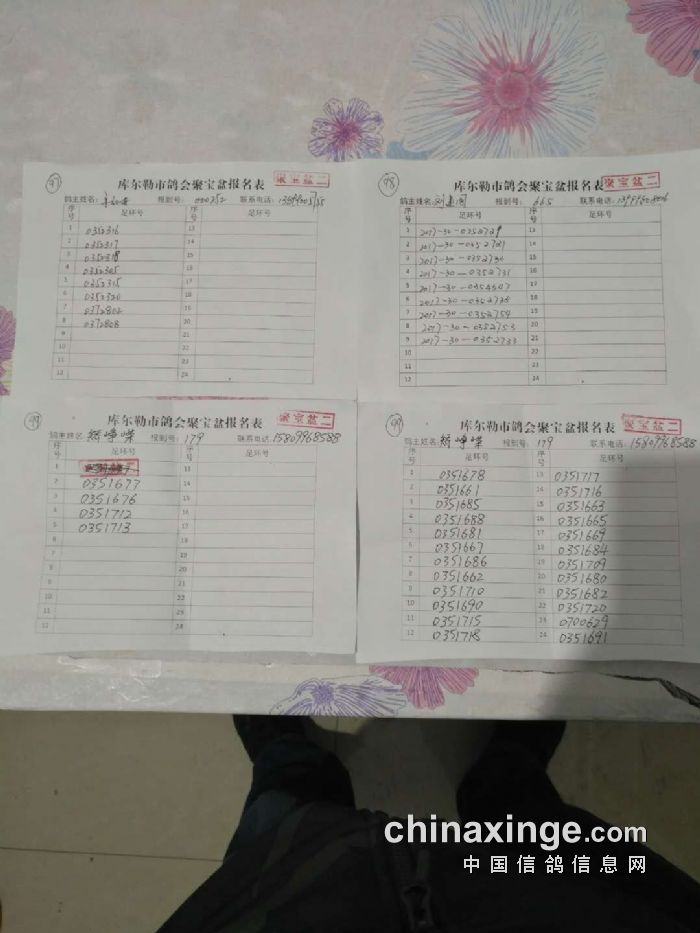 97
库尔勒市鸽会聚宝盆报名表
聚宝盆二
鸽主姓名:
报到号: 000252
联系电话:
序号 足环号 序号 足环号
1 0352316 13
2 0352317 14
3 0352318 15
4 0352305 16
5 0352315 17
6 0352320 18
7 0372802 19
8 0372808 20
9 21
10 22
11 23
12 24
98
库尔勒市鸽会聚宝盆报名表
聚宝盆二
鸽主姓名:
报到号: 665
联系电话:
序号 足环号 序号 足环号
1 2017-30-0352729 13
2 2017-30-0352721 14
3 2017-30-0352730 15
4 2017-30-0352731 16
5 2017-30- 17
6 2017-30-0352728 18
7 2017-30-0352754 19
8 2017-30-0352753 20
9 2017-30-0352733 21
10 22
11 23
12 24
99
库尔勒市鸽会聚宝盆报名表
聚宝盆二
鸽主姓名: 峥嵘
报到号: 179
联系电话: 15809968588
序号 足环号 序号 足环号
1 13
2 0351677 14
3 0351676 15
4 0351712 16
5 0351713 17
6 18
7 19
8 20
9 21
10 22
11 23
12 24
99
库尔勒市鸽会聚宝盆报名表
聚宝盆二
鸽主姓名: 峥嵘
报到号: 179
联系电话: 15809968588
序号 足环号 序号 足环号
1 0351678 13 0351717
2 0351661 14 0351716
3 0351685 15 0351663
4 0351688 16 0351665
5 0351681 17 0351669
6 0351667 18 0351684
7 0351686 19 0351709
8 0351662 20 0351680
9 0351710 21 0351682
10 0351690 22 0351720
11 0351715 23 0700629
12 0351718 24 0351691
chinaxinge.com
中国信鸽信息网